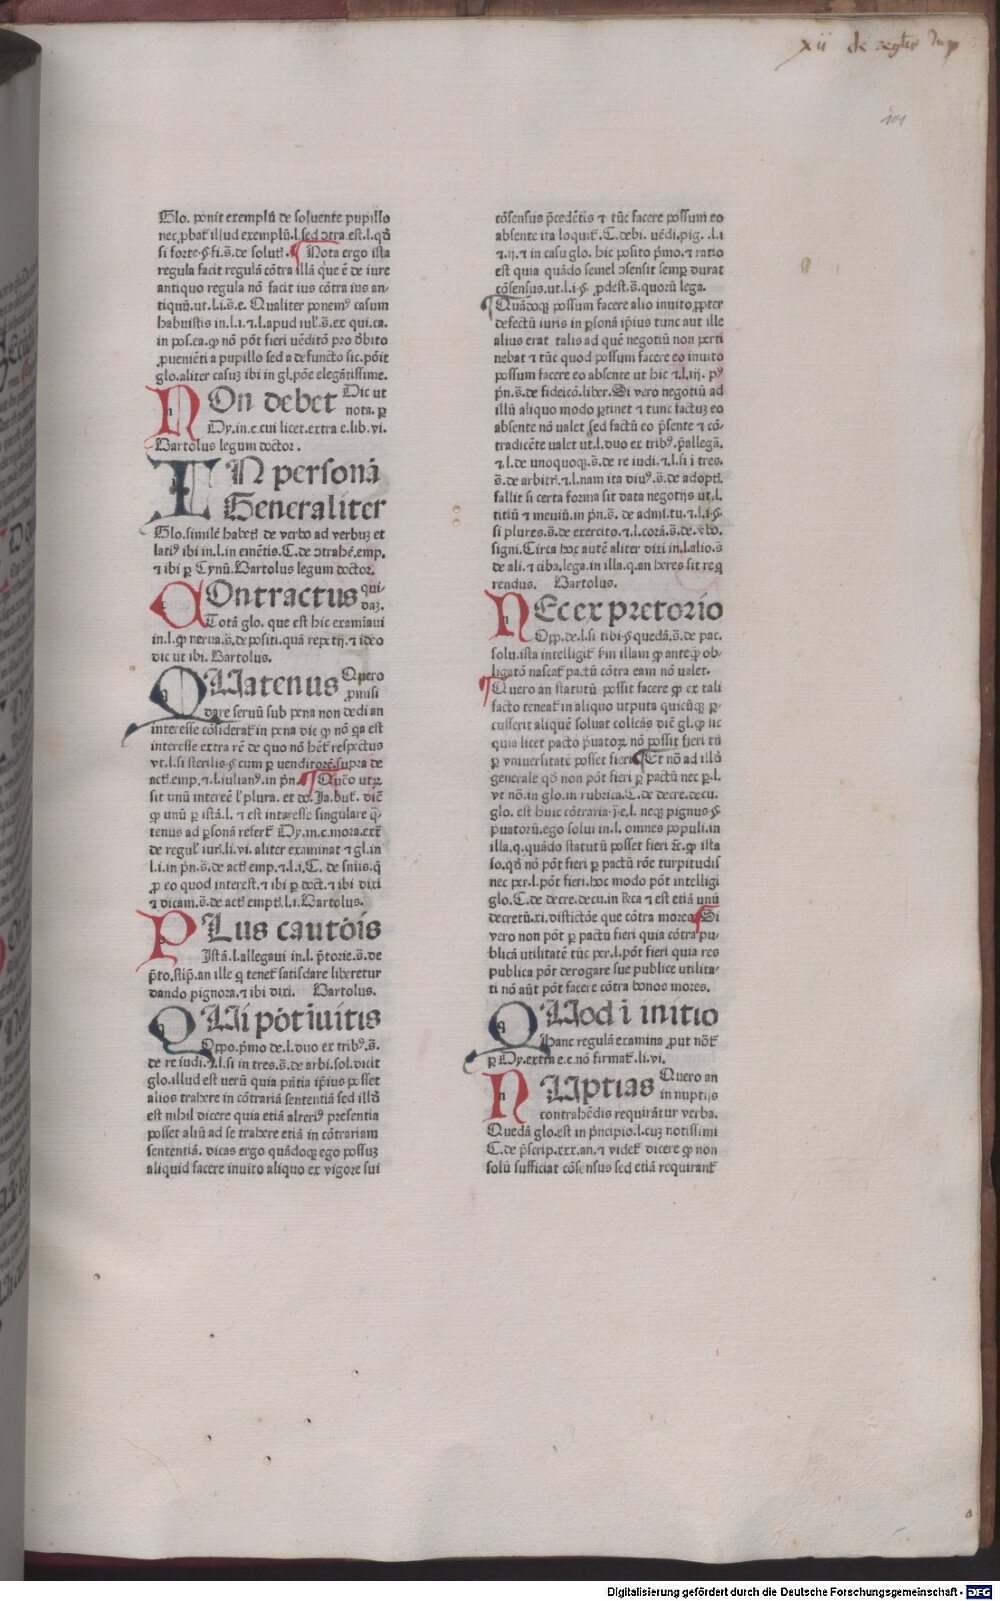 xii de reglis iur
101
Glo. ponit exemplū de soluente pupillo
nec ꝓbat᷑ illud exemplū.l.sed ↄtra.est.l.qđ
si forte.§.fi.s̄.de solut᷑. ¶ Nota ergo ista
regula facit regulā cōtra illā que ē de iure
antiquo regula nō facit ius cōtra ius an-
tiquū.ut.l.i.s̄.e. Qualiter ponemꝰ casum
habuistis in.l.i.⁊.l.apud iul᷑.s̄.ex qui.ca.
in pos.ea.ꝙ nō pōt fieri uēditō pro đbito
ꝓueniēti a pupillo sed a defuncto sic.pōit
glo.aliter casuꝫ ibi in gl.pōe elegātissime.
NOn debet Dic ut
nota. ꝑ
Dy.in.c.cui licet.extra e.lib.vi.
Bartolus legum doctor.
IN personā
Generaliter
Glo.similē habet᷑ de verbo ad verbuꝫ et
latiꝰ ibi in.l.in emētis.C.de ↄtrahē.emp.
⁊ ibi ꝑ Cynū.Bartolus legum doctor.
COntractus qui-
daꝫ.
Totā glo. que est hic examīaui
in.l.ꝙ nerua.s̄.de positi.quā repetij.⁊ ideo
dic ut ibi. Bartolus.
QUatenus Quero
ꝓmisi
dare seruū sub pena non dedi an
interesse cōsiderat᷑ in pena dic ꝙ nō qa est
interesse extra rē de quo nō hēt᷑ respectus
vt.l.si sterilis.§.cum ꝑ venditorē.supra de
act᷑.emp.⁊.l.iulianꝰ.in pn̄. ¶ Quero utꝝ
sit unū intereē l᷑ plura. et do. Ja.but᷑. dic̄
ꝙ unū ꝑ istā.l. ⁊ est interesse singulare q̄-
tenus ad ꝑsonā refert᷑ Dy.in.c.mora.ext᷑
de regul᷑ iur᷑.li.vi. aliter examinat ⁊ gl.in
l.i.in pn̄.s̄.de act᷑ emp.⁊.l.i.C. de sn̄iis.q̄
ꝓ eo quod interest.⁊ ibi ꝑ doct᷑.⁊ ibi dixi
⁊ dicam.s̄.de act᷑ empt᷑.l.i.Bartolus.
PLus cautōis
Istā.l.allegaui in.l. p̄torie.s̄.de
p̄to.stip̄.an ille q̄ tenet᷑ satisdare liberetur
dando pignora.⁊ ibi dixi. Bartolus.
QUi pōt iuitis
Oppo.pͥmo de.l.duo ex tribꝰ.s̄.
de re iudi.⁊.l.si in tres.s̄.de arbi.sol.dicit
glo.illud est uerū quia pn̄tia ip̄ius posset
alios trahere in cōtrariā sententiā sed illđ
est nihil dicere quia etiā alteriꝰ presentia
posset aliū ad se trahere etiā in cōtrariam
sententiā. dicas ergo quādoqꝫ ego possuꝫ
aliquid facere inuito aliquo ex vigore sui
cōsensus p̄cedētis ⁊ tūc facere possum eo
absente ita loquit᷑.C.debi. uēdi.pig. .l.i
⁊.ij.⁊ in casu glo. hic posito pͥmo.⁊ ratio
est quia quādo semel ↄsensit semꝑ durat
cōsensus.ut.l.i.§ ꝓdest.s̄.quorū lega.
¶ Quādoqꝫ possum facere alio inuito ꝓpter
defectū iuris in ꝑsonā ip̄ius tunc aut ille
alius erat talis ad quē negotiū non perti
nebat ⁊ tūc quod possum facere eo inuito
possum facere eo absente ut hic ⁊.l.iij. pͬ
pn̄.s̄.de fideicō.liber.Si vero negotiū ad
illū aliquo modo ꝑtinet ⁊ tunc factuꝫ eo
absente nō ualet sed factū eo p̄sente ⁊ cō-
tradicēte ualet ut.l.duo ex tribꝰ.p̄allegā.
⁊.l.de unoquoqꝫ.s̄.de re iudi.⁊.l.si i tres.
s̄.de arbitr᷑.⁊.l.nam ita diuꝰ.s̄.de adopt᷑.
fallit si certa forma sit data negotijs ut.l.
titiū ⁊ meuiū.in pn̄.s̄. de admī.tu.⁊.l.i.§.
si plures.s̄.de exercito.⁊.l.corā.s̄.de.v̄bo.
signi.Circa hoc autē aliter dixi in.l.alio.s̄
de ali.⁊ ciba.lega.in illa.q.an heres sit req
rendus. Bartolus.
NEc ex pretorio
Opp.de.l.si tibi.§.quedā.s̄.de pac.
solu.ista intelligit᷑ sm illam ꝙ ante.ꝙ ob-
ligatō nascat᷑ pactū cōtra eam nō ualet.
¶ Quero an statutū possit facere ꝙ ex tali
facto teneat᷑ in aliquo utputa quicūqꝫ ꝑ-
cusserit aliquē soluat collcās dic̄ gl.ꝙ sic
quia licet pacto p̄uatoꝝ nō possit fieri tn̄
ꝑ vniuersitatē posset fieri. ¶ Et nō ad illđ
generale qđ non pōt fieri ꝑ pactū nec ꝑ.l.
vt nō.in glo.in rubrica.C.de decre.decu.
glo. est huic cōtraria.j.e.l. neqꝫ pignus.§
p̄uatorū.ego solui in.l. omnes populi.in
illa.q.quādo statutū posset fieri ⁊c.ꝙ ista
so.qđ nō pōt fieri ꝑ pactū rōe turpitudis
nec per.l.pōt fieri.hoc modo pōt intelligi
glo.C.de decre.decu.in ℞ca ⁊ est etiā unū
decretū.xi.distictōe que cōtra mores. ¶ Si
vero non pōt ꝑ pactū fieri quia cōtra pu-
blicā utilitatē tūc per.l.pōt fieri quia res
publica pōt derogare sue publice utilita-
ti nō aūt pōt facere cōtra bonos mores.
QUod i initio
Hanc regulā examina ꝓut nōt᷑
ꝑ Dy.extra e.c.nō firmat᷑.li.vi.
NUptias Quero an
in nuptijs
contrahēdis requirātur verba.
Quedā glo.est in pͥncipio.l.cuꝫ notissimi
C.de p̄scrip.xxx.an.⁊ videt᷑ dicere ꝙ non
solū sufficiat cōsensus sed etiā requirant᷑
Digitalisierung gefördert durch die Deutsche Forschungsgemeinschaft - DFG